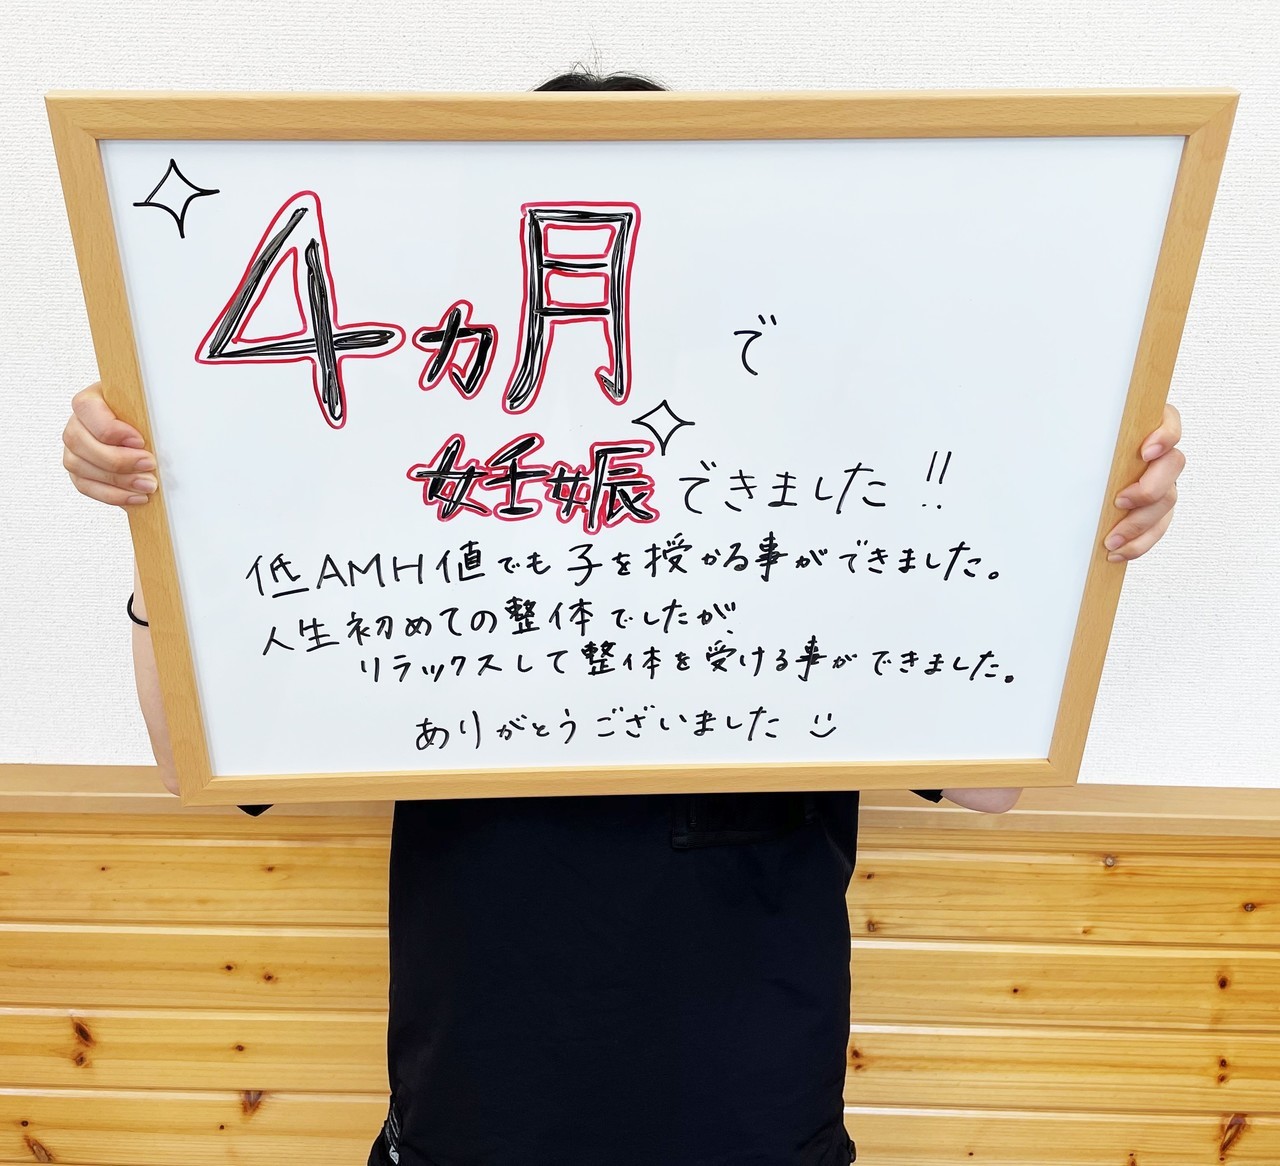 4ヵ月で
妊娠できました!!
低AMH値でも子を授かる事ができました。
人生初めての整体でしたが、
リラックスして整体を受ける事ができました。
ありがとうございました